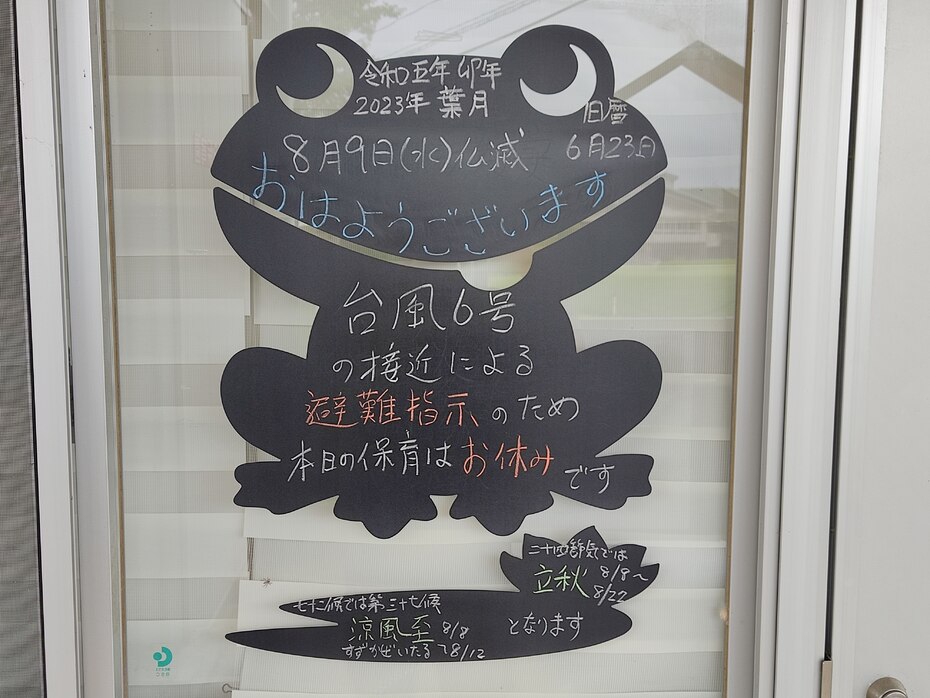 令和五年 卯年
2023年 葉月
旧暦
6月23日
8月9日(水)仏滅
おはようございます
台風6号
の接近による
避難指示のため
本日の保育はお休みです
二十四節気では
立秋 8/8～
8/22
七十二候では第三十七候
涼風至 8/8
すずかぜいたる ～8/12
となります